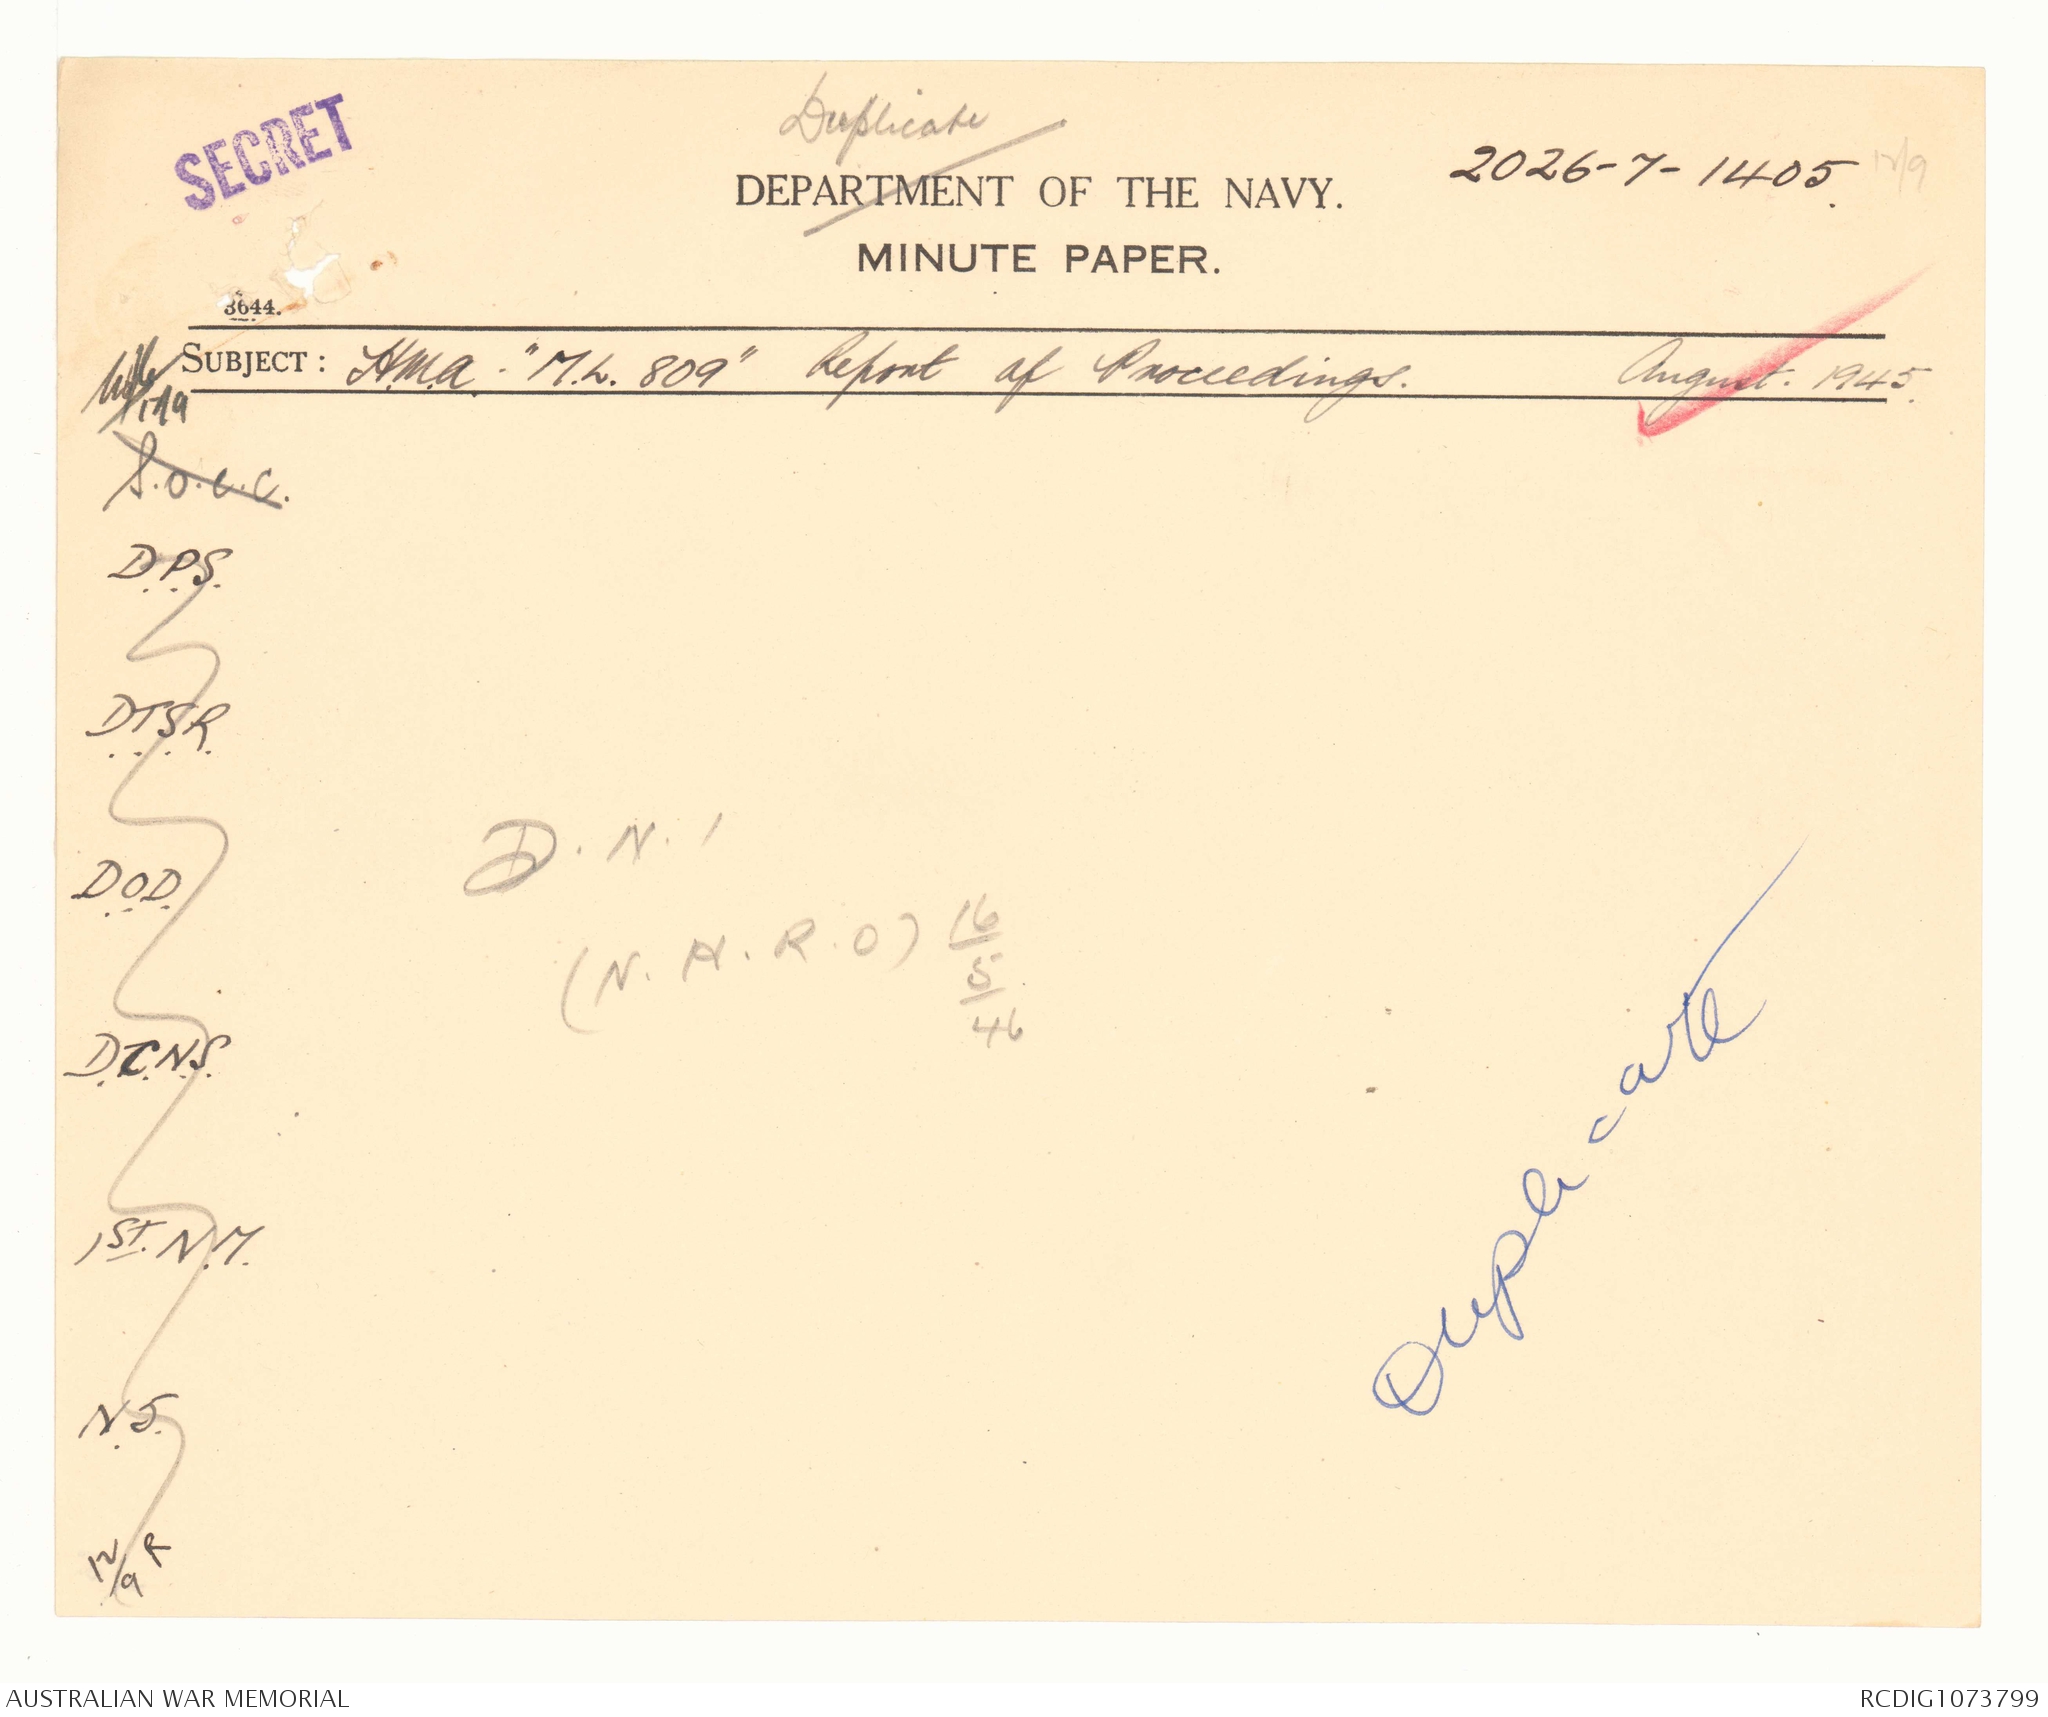 SECRET
Duplicate
2026-7-1405.
12/9
DEPARTMENT OF THE NAVY.
MINUTE PAPER.
3644.
SUBJECT: H.M.A. "M.L. 809" Report of Proceedings. August. 1945.
17/9
S.O.C.C.
D.P.S.
D.T.S.R.
D.O.D.
D.C.N.S.
1ST. N.M.
N.S.
12/9 R
D.N.I
(N.H.R.O) 16/5/46
Duplicate
AUSTRALIAN WAR MEMORIAL
RCDIG1073799